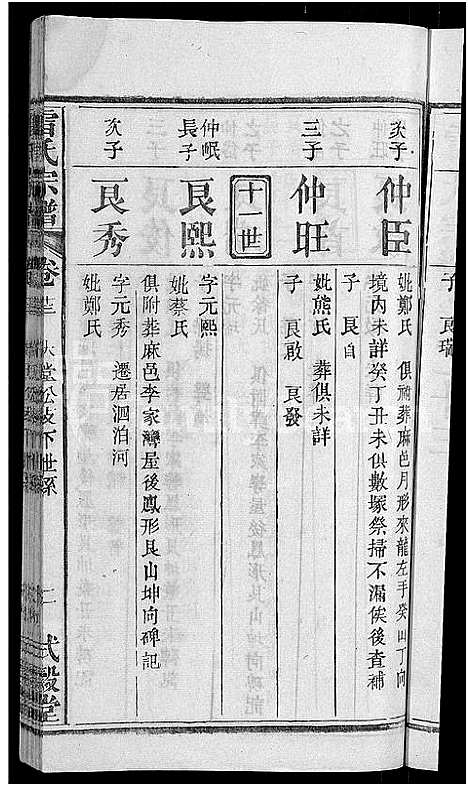 子 良瑞
次子
仲臣
妣鄭氏 俱祔葬麻邑月形來龍左手癸山丁向
境內未詳癸丁丑未俱數塚祭掃不漏俟後查補
子 良自
三子
仲旺
妣熊氏 葬俱未詳
子 良啟 良發
十一世
仲岷
長子
良熙
字元熙
妣蔡氏
俱附葬麻邑李家灣屋後鳳形艮山坤向碑記
次子
良秀
字元秀 遷居洄泊河
妣鄭氏
雷氏宗譜
卷廿三
大堂公支下世系
二
式穀堂